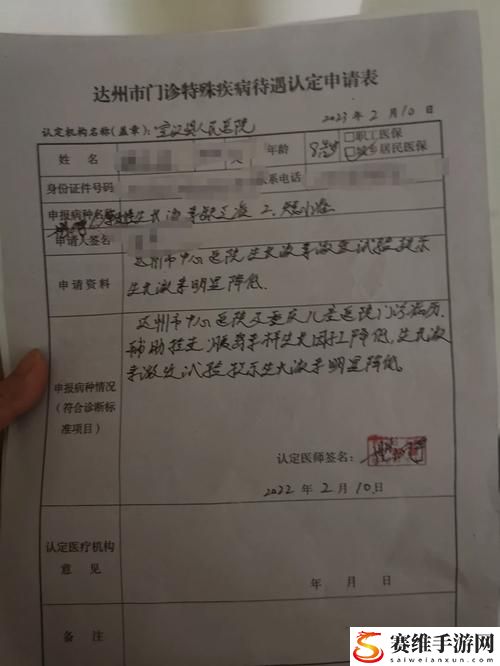 达州市门诊特殊疾病待遇认定申请表
认定机构名称(盖章): 宣汉县人民医院 2023 年 2 月 10 日
姓 名 年龄 8岁 □职工医保
□城乡居民医保
身份证件号码 系电话
申报病种名称 生长激素缺乏症 2.
申请人签名
申请资料 达州市中心医院生长激素激发试验提示
生长激素明显降低.
达州市中心医院及重庆儿童医院门诊病历.
辅助检查:胰岛素样生长因子降低.生长激
素激发试验提示生长激素明显降低。
申报病种情况
(符合诊断标
准项目)
认定医师签名:
2022 年 2 月 10 日
认定医疗机构
意 见
年 月 日
备 注
赛维手游网
www.saiweianxun.com